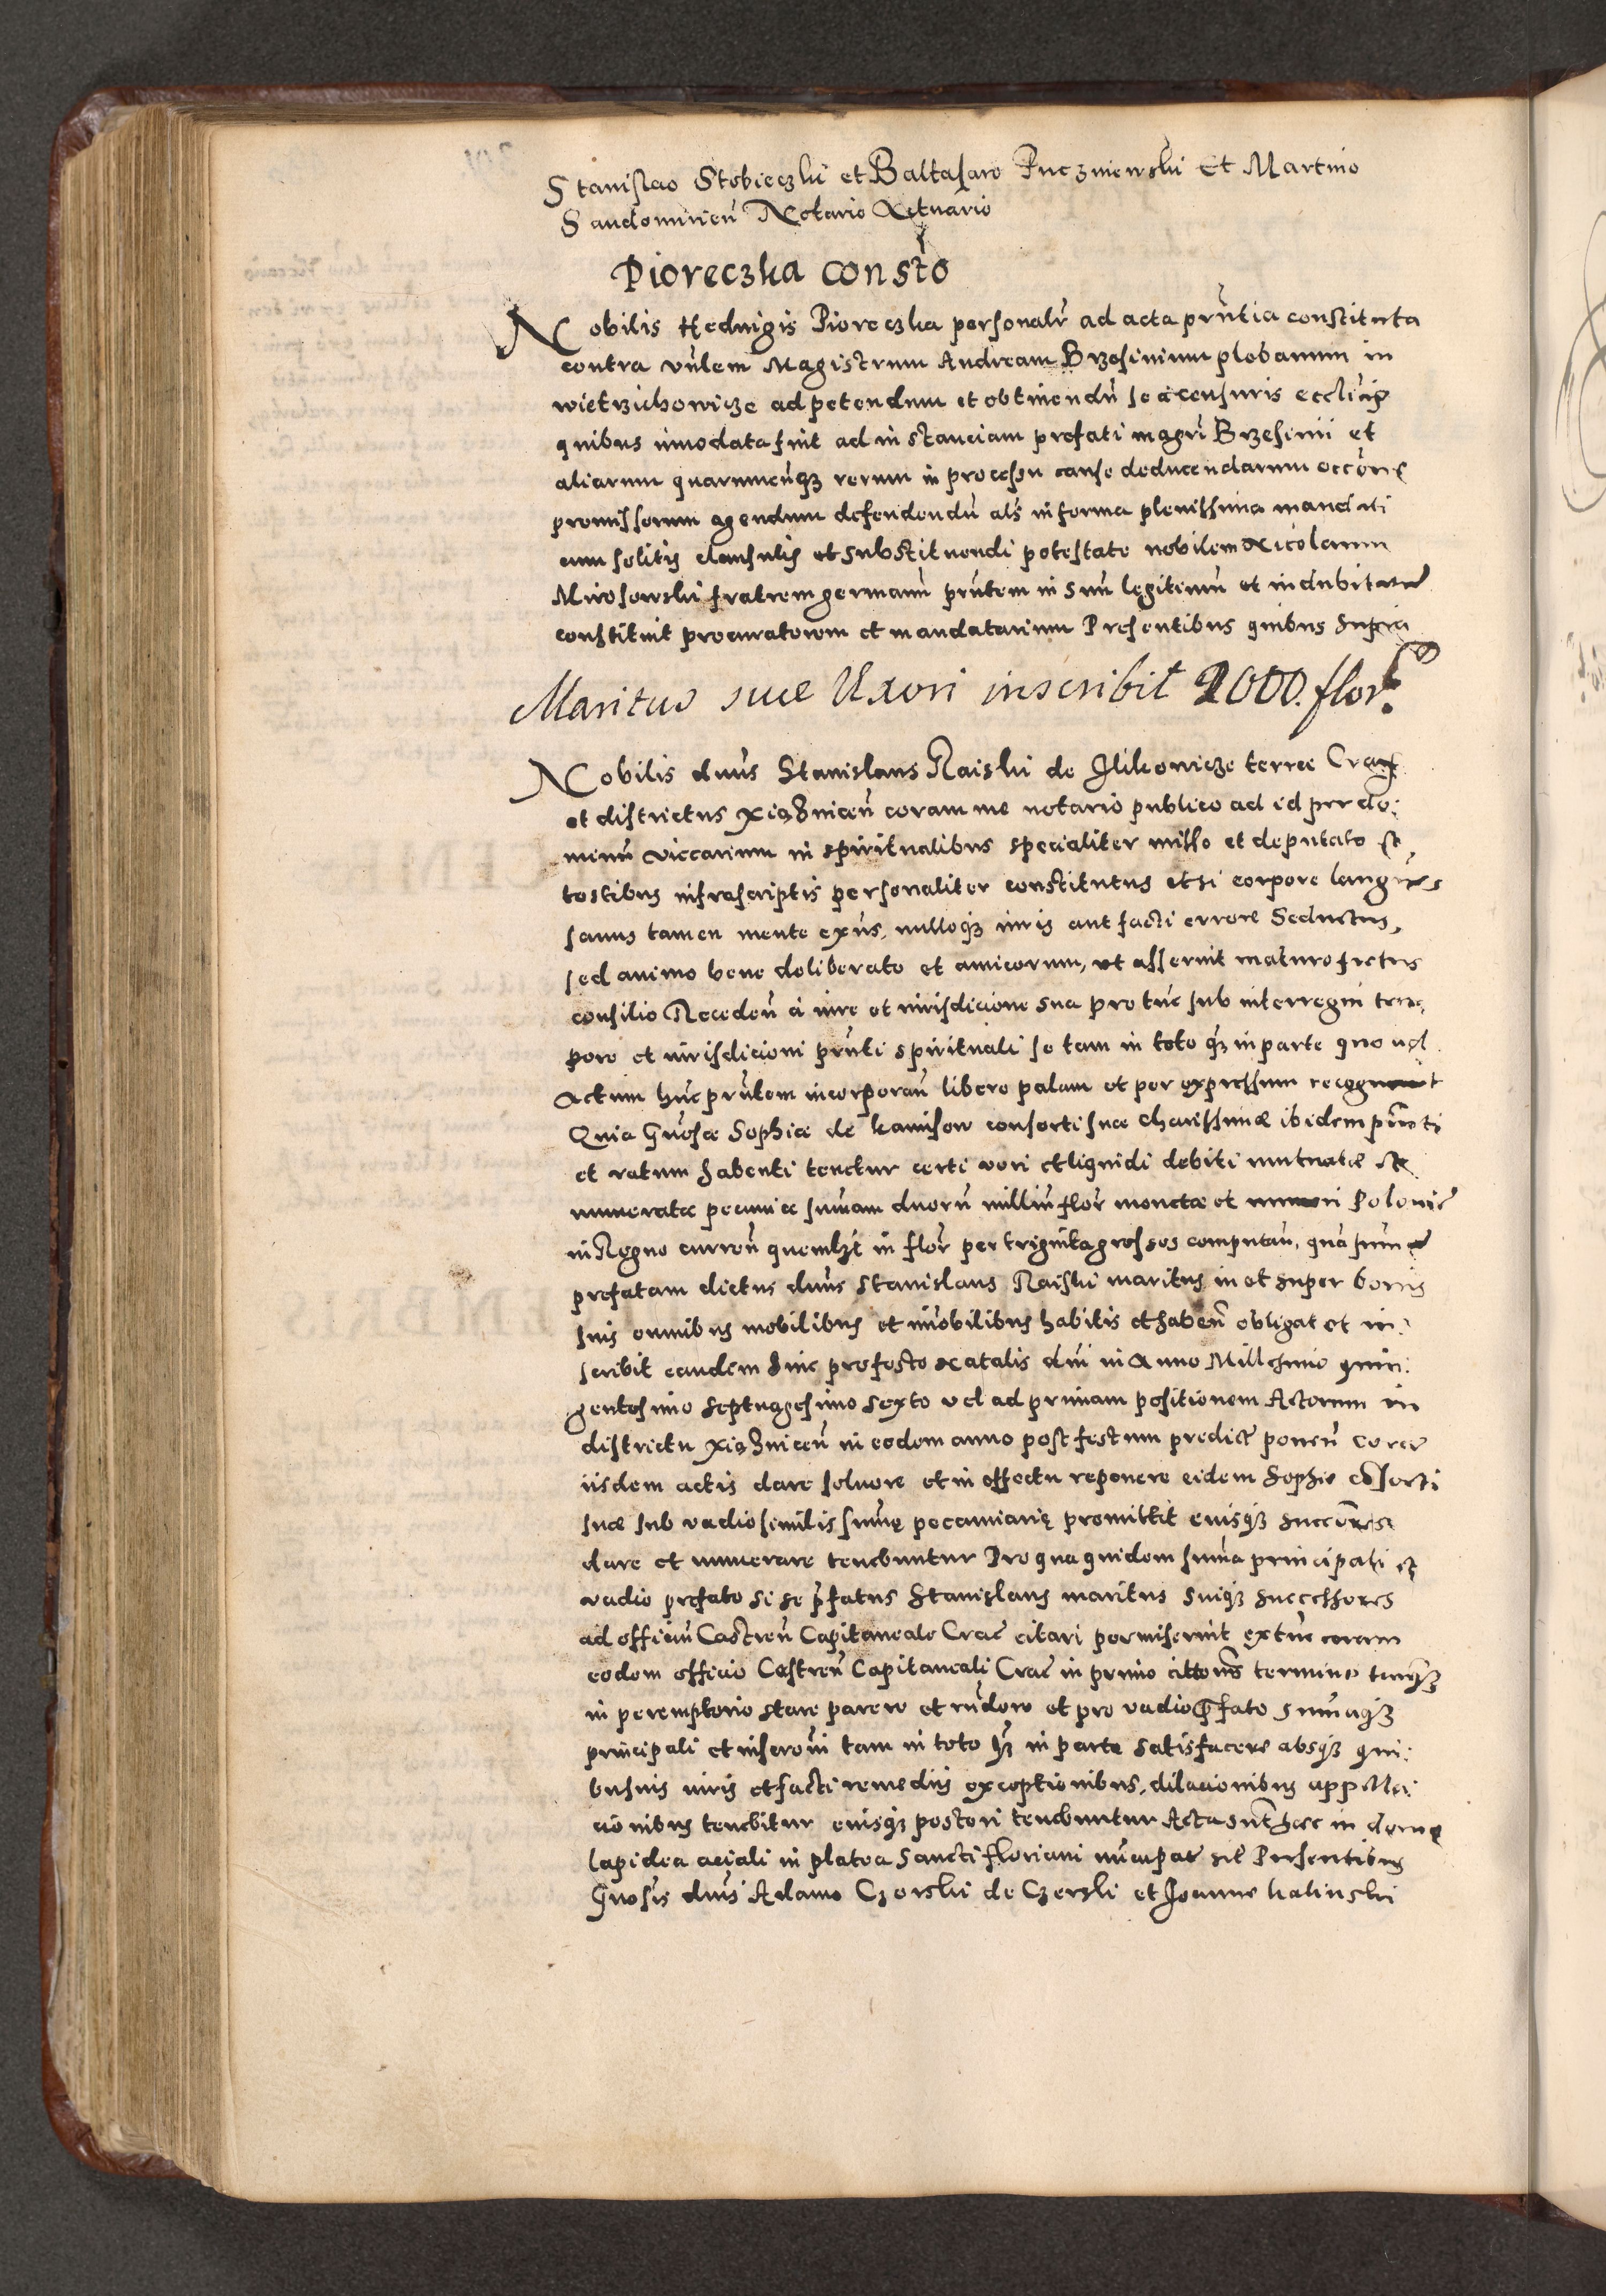 Stanislao Stobieczki et Baltasaro Puczniewski Et Martino
Sandomirien̄ Notario Actuario
Pioreczka Consto
Nobilis Hedvigis Pioreczka personalr̄ ad acta prn̄tia constituta
contra vn̄lem Magistrum Andream Brzesinium plebanum in
wietrzichowicze ad petendum et obtinendū se a censuris eccl̄icis
quibus innodata fuit ad instanciam prefati magr̄i Brzesinii et
aliarum quarumcunq3 rerum in processu cause deducendarum occōne
promissorum agendum defendendū als̄ in forma plenissima mandati
cum solitis clausulis et substituendi potestate nobilem Nicolaum
Mirosowski fratrem germanū prn̄tem in suū legitimū et indubitatū
constituit procuratorem et mandatarium Presentibus quibus supra
Maritus suæ Uxori inscribit 2000. flor.
Nobilis dn̄us Stanislaus Raiski de Ilikowicze terræ Crac̄
et districtus Xiąznicen̄ coram me notario publico ad id per do:
minū viccarium in spiritualibus specialiter misso et deputato et
testibus infrascriptis personaliter constitutus etsi corpore languens
sanus tamen mente exn̄s, nulloq3 iuris aut facti errore Seductus,
sed animo bene deliberato et amicorum, ut asseruit maturo fretus
consilio Receden̄ a iure et iurisdicione sua pro tūc sub interregni tem,
pore et iurisdicioni prn̄ti spirituali se tam in toto q3 in parte quo ad
Actum hūc prn̄tem incorporan̄ libere palam et per expressum recognouit
Quia Gn̄osæ Sophiæ de Kamisow consorti suæ charissimæ ibidem prn̄ti
et ratum habenti tenetur certi veri et liquidi debiti mutuatæ et
numeratæ pecuniæ sum̄am duorū milliū flor̄ monetæ et numeri Poloniē
in Regno curren̄ quemlz̄t in flor̄ per triginta grossos computan̄, quā sum̄ā
prefatam dictus dn̄us Stanislaus Raiski maritus in et super bonis
suis omnibus mobilibus et im̄obilibus habitis et haben̄ obligat et in:
scribit eandem hinc pro festo Natalis dn̄i in Anno Millesimo quin:
gentesimo septuagesimo sexto vel ad primam positionem Actorum in
districtu Xiąznicen̄ in eodem anno post festum predict̄ ponen̄ corā
iisdem actis dare soluere et in effectu reponere eidem Sophie cōsorti
suæ sub vadio similis sum̄ę pecuniarię promittit eiusq3 succōres
dare et numerare tenebuntur Pro qua quidem sum̄a principali et
vadio prefato si se p̄fatus Stanislaus maritus suiq3 successores
ad officiū Castren̄ Capitaneale Crac̄ citari permiserint extūc coram
eodem officio Castren̄ Capitaneali Crac̄ in primo cittōnis termino tanq3
in peremptorio stare parere et rn̄dere et pro vadio p̄fato sum̄aq3
principali et inseron̄i tam in toto q3 in parte satisfacere absq3 qui:
busuis iuris et facti remediis exceptionibus, dilacionibus appella:
cionibus tenebitur eiusq3 posteri tenebuntur Acta sun̄t hæc in domo
lapidea aciali in platea Sancti floriani nūcupat̄ sit̄ Presentibus
Gn̄osis dn̄is Adamo Czerski de Czerski et Joanne Kalinski